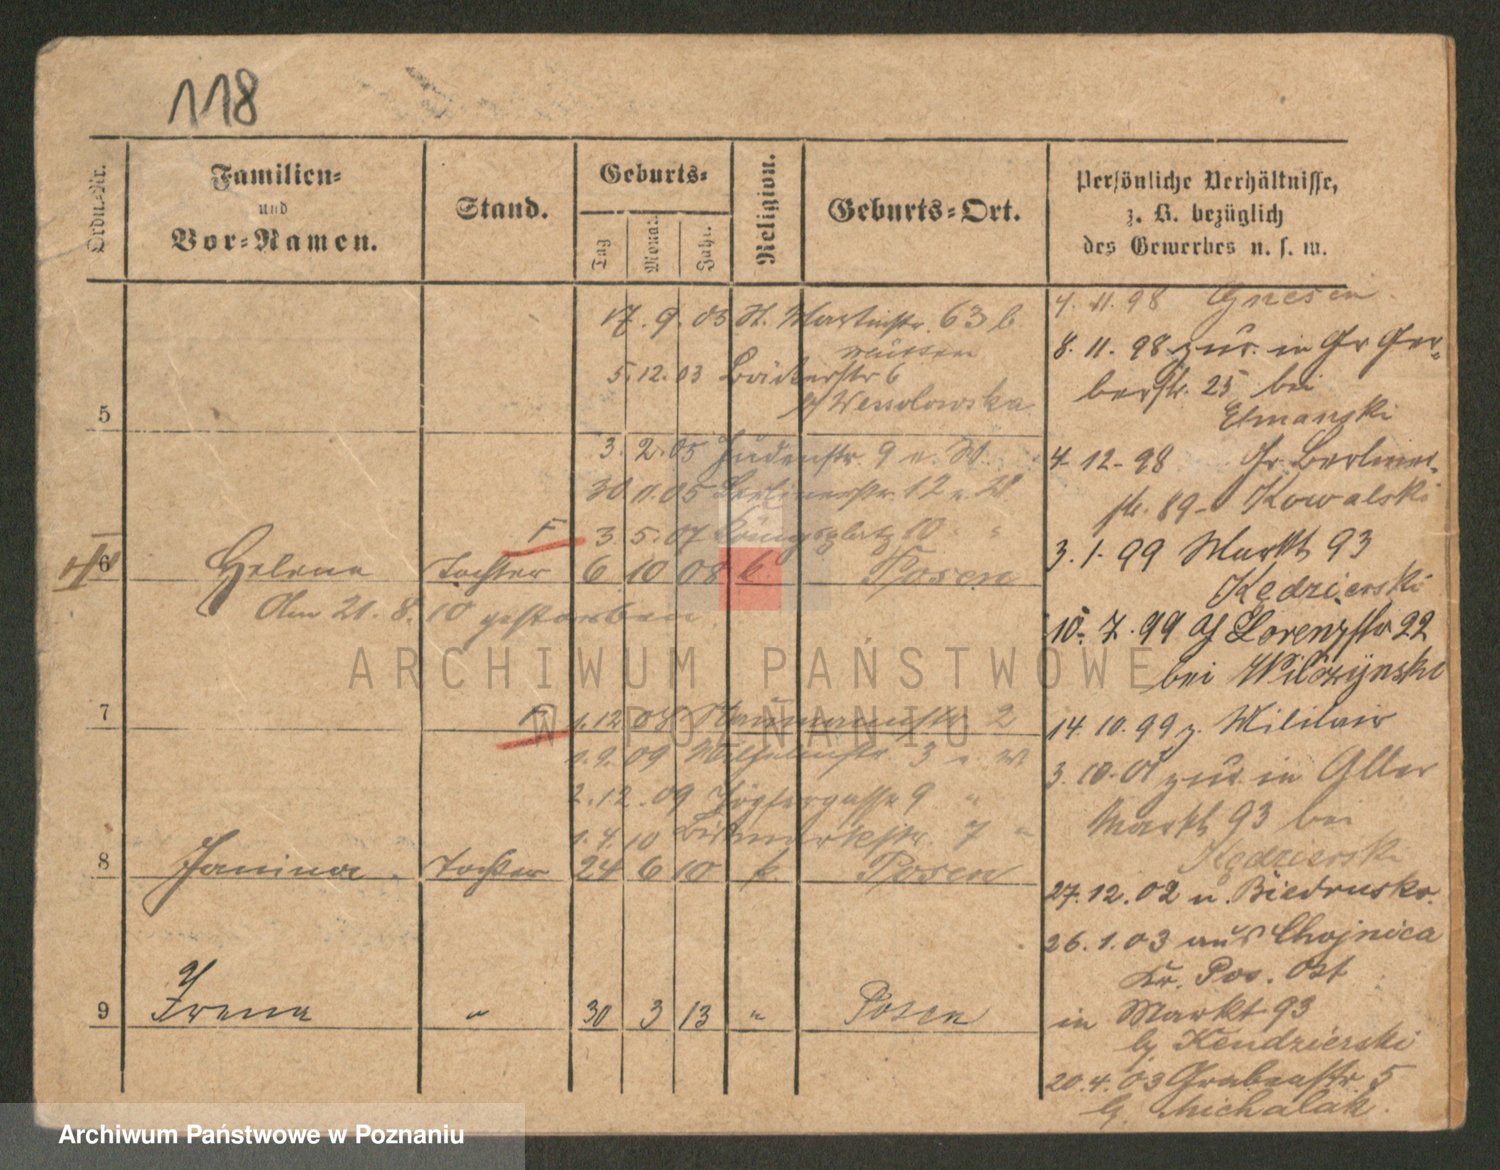 118
Ordn.-Nr.
Familien-
und
Vor-Namen.
Stand.
Geburts-
Tag
Monat
Jahr.
Religion.
Geburts-Ort.
Persönliche Verhältnisse,
z. B. bezüglich
des Gewerbes u. s. w.
17. 9. 03 St. Martinstr. 63 b
5. 12. 03 Bäckerstr 6
Wendlowska
5
3. 2. 05 Judenstr. 9 e. W.
30 11. 05 Berlinerstr. 12 e. W
F 3 5. 07 Königsplatz 10 "
6 Helena Tochter 6 10 08 k. Posen
Am 21. 8. 10 gestorben.
7
F 1. 12 08 Naumannstr. 2
1. 9. 09 Wilhelmstr. 3 e. W
2. 12. 09 Töpfergasse 9 "
1. 4. 10 Bismarckstr. 7 "
8 Janina. Tochter 24 6 10 k. Posen
9 Irena " 30 3 13 " Posen
4. 11. 98 Gnesen
8. 11. 98 zur. in Gr Ger-
berstr. 25 bei
Etmanski
4. 12. 98 Gr Berliner-
str. 89 Kowalski
3. 1. 99 Markt 93
Kędzierski
10. 7. 99 Lorenzstr 22
bei Wilczynski
14. 10. 99 z. Militair
3. 10. 01 zur. in Alter
Markt 93 bei
Kędzierski
27. 12. 02 n. Biedrusko.
26. 1. 03 aus Chojnica
Kr. Pos. Ost
in Markt 93
b/ Kendzierski
20. 4. 03 Grabenstr. 5
b/ Michalak.
ARCHIWUM PAŃSTWOWE
W POZNANIU
Archiwum Państwowe w Poznaniu